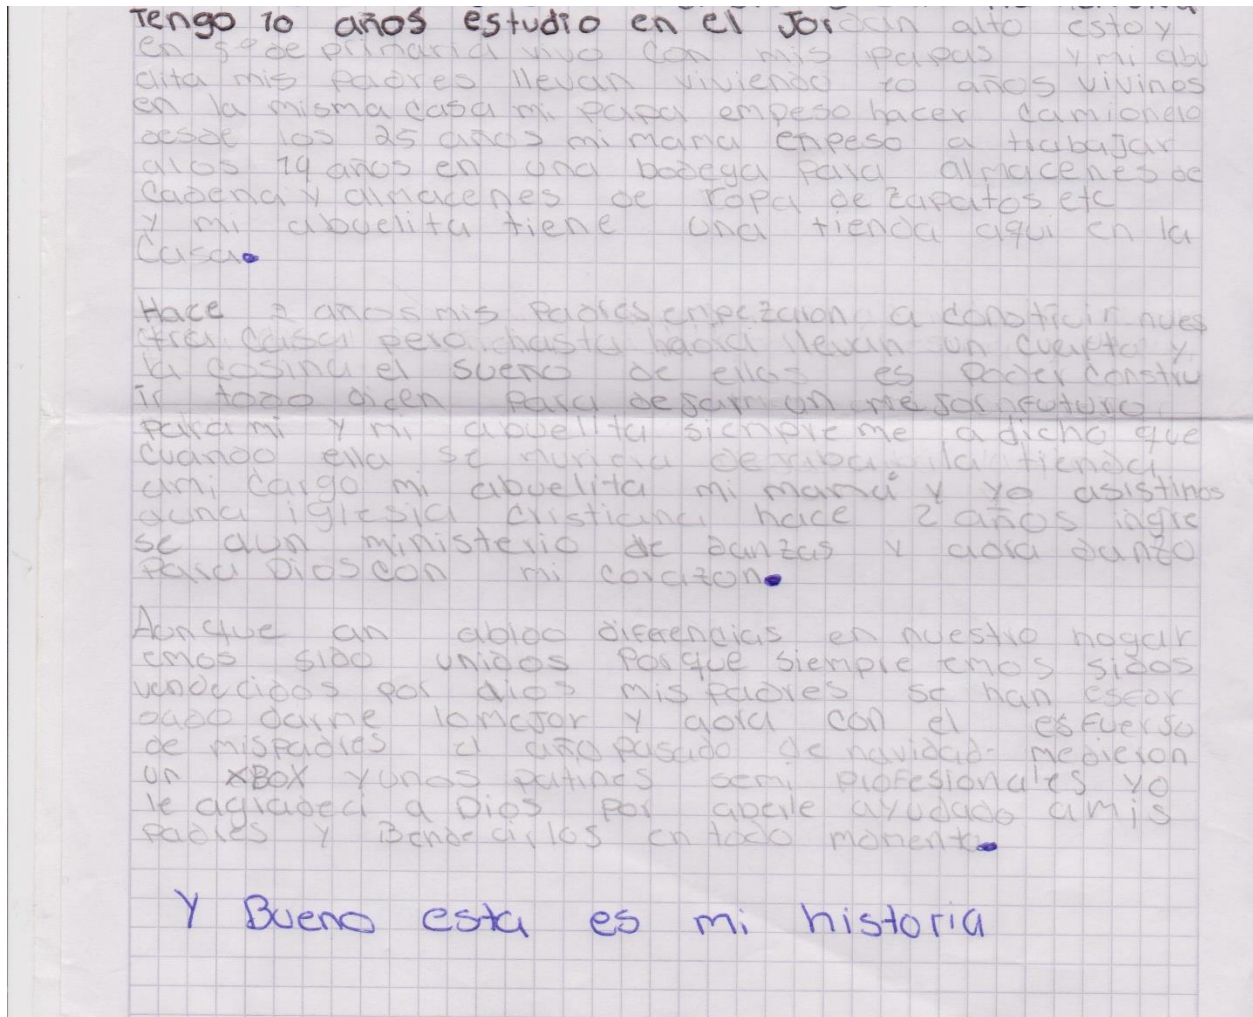 Tengo 10 años estudio en el Jordan alto estoy
en 5º de primaria vivo con mis papas y mi abu
elita mis padres llevan viviendo 10 años vivinos
en la misma casa mi papa empeso hacer camionero
desde los 25 años mi mama enpeso a trabajar
alos 19 años en una bodega para almacenes de
cadena y almacenes de ropa de zapatos etc
y mi abuelita tiene una tienda aqui en la
casa.
Hace 2 años mis padres enpezaron a construir nues
tra casa pero hasta haora llevan un cuarto y
la cosina el sueño de ellos es poder constru
ir todo dicen para dejarn un mejor futuro
para mi y mi abuelita sienpre me a dicho que
cuando ella se muriera la tienda
ami cargo mi abuelita mi mamá y yo asistinos
auna iglesia cristiana hace 2 años ingre
se aun ministerio de danzas y aora danzo
para Dios con mi corazon.
Aunque an abido diferencias en nuestro hogar
emos sido unidos porque siempre emos sidos
vendecidos por dios mis padres se han esfor
sado darme lomejor y aora con el esfuerso
de mispadres el año pasado de navidad medieron
un XBOX yunos patines semi profesionales yo
le agradeci a Dios por aberle ayudado amis
padres y Bendecirlos en todo momento.
Y Bueno esta es mi historia